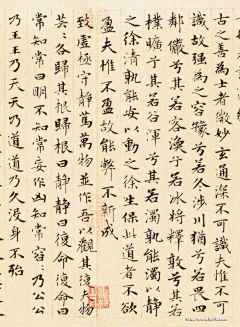 古之善為士者微妙玄通深不可識夫惟不可
識故強為之容豫兮若冬涉川猶兮若畏四
鄰儼兮其若客渙兮若冰將釋敦兮其若
樸曠兮其若谷渾兮其若濁孰能濁以靜
之徐清孰能安以動之徐生保此道者不欲
盈夫惟不盈故能弊不新成
致虛極守靜篤萬物並作吾以觀其復夫物
芸〻各歸其根歸根曰靜〻曰復命復命曰
常知常曰明不知常妄作凶知常容〻乃公公
乃王王乃天天乃道道乃久沒身不殆